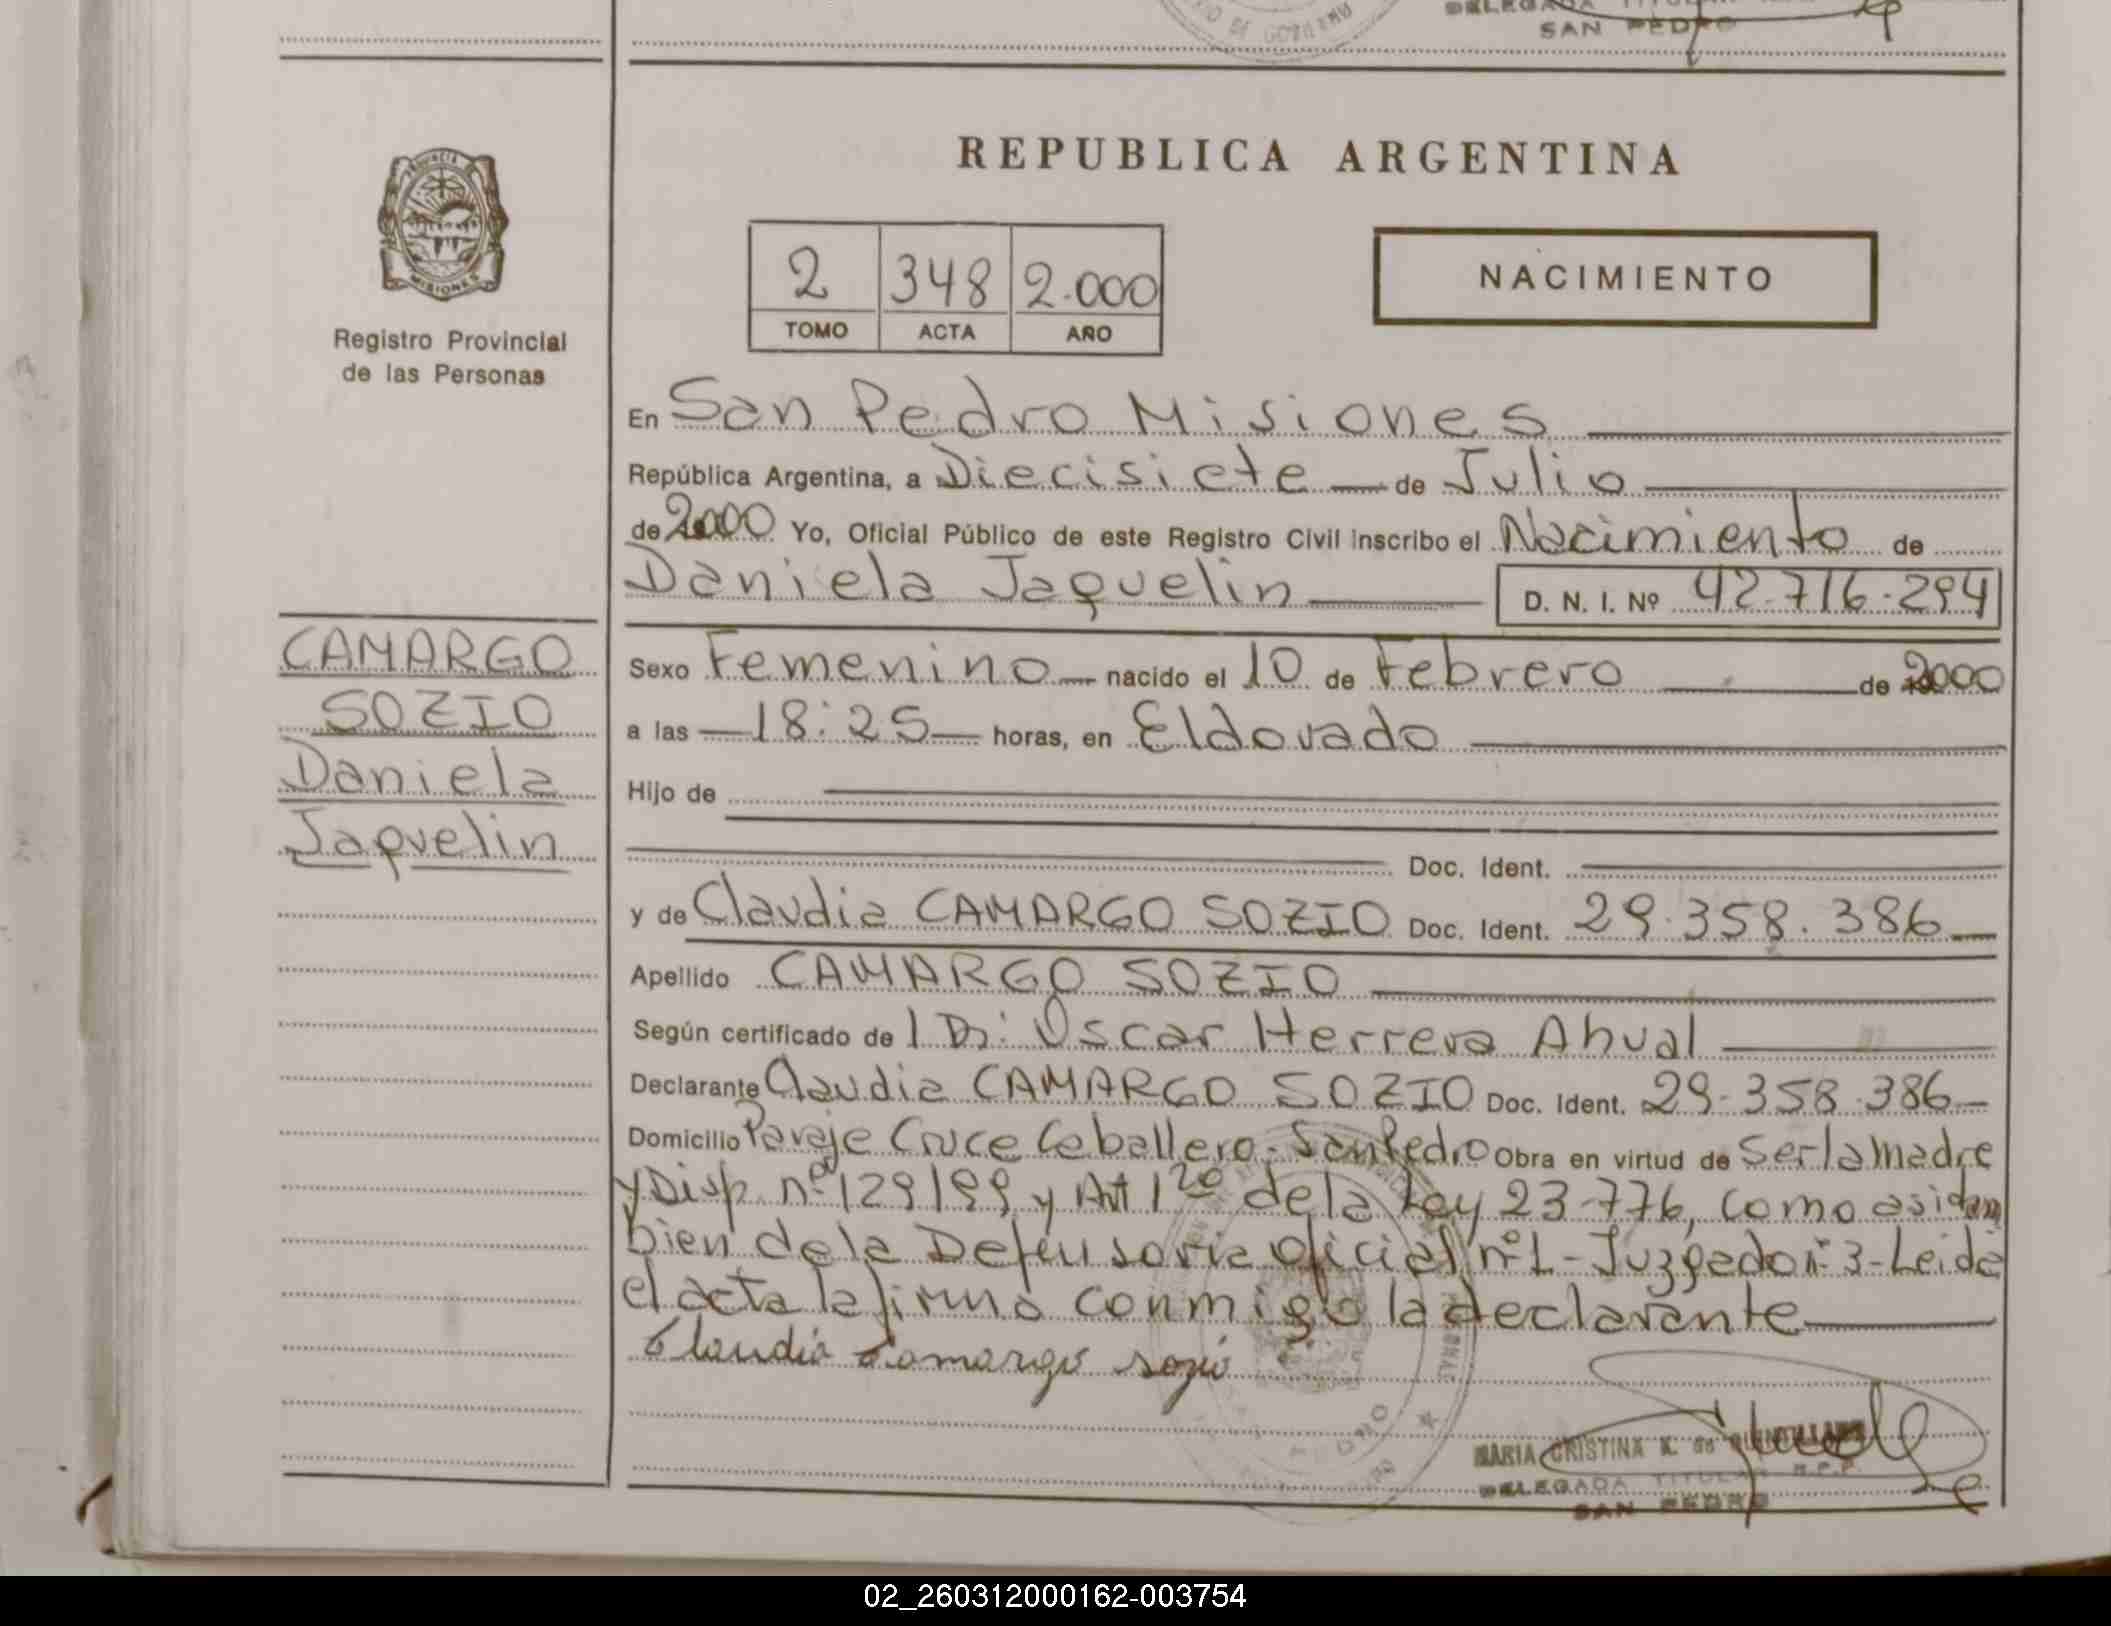 DELEGADA TITULAR
SAN PEDRO
REPUBLICA ARGENTINA
PROVINCIA DE
MISIONES
Registro Provincial
de las Personas
2 348 2.000
TOMO ACTA AÑO
NACIMIENTO
En San Pedro Misiones
República Argentina, a Diecisiete de Julio
de 2000 Yo, Oficial Público de este Registro Civil inscribo el Nacimiento de
Daniela Jaquelin D. N. I. Nº 42.716.294
CAMARGO
SOZIO
Daniela
Jaquelin
Sexo Femenino nacido el 10 de Febrero de 2000
a las 18:25 horas, en Eldorado
Hijo de
Doc. Ident.
y de Claudia CAMARGO SOZIO Doc. Ident. 29.358.386
Apellido CAMARGO SOZIO
Según certificado de Dr: Oscar Herrera Ahual
Declarante Claudia CAMARGO SOZIO Doc. Ident. 29.358.386
Domicilio Paraje Cruce Caballero. San Pedro Obra en virtud de Ser la Madre
y Disp. nº 129/99 y Art 1º de la Ley 23.776, como asi tam
bien de la Defensoria oficial nº 1 - Juzgado nº 3 - Leida
el acta la firma conmigo la declarante
Claudia Camargo sozio
MARIA CRISTINA K. de QUINTILLANS
DELEGADA TITULAR R.P.P.
SAN PEDRO
02_260312000162-003754